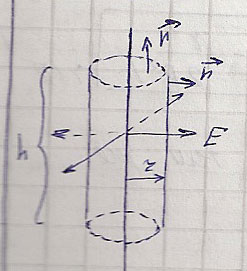 n⃗
n⃗
h
E
r